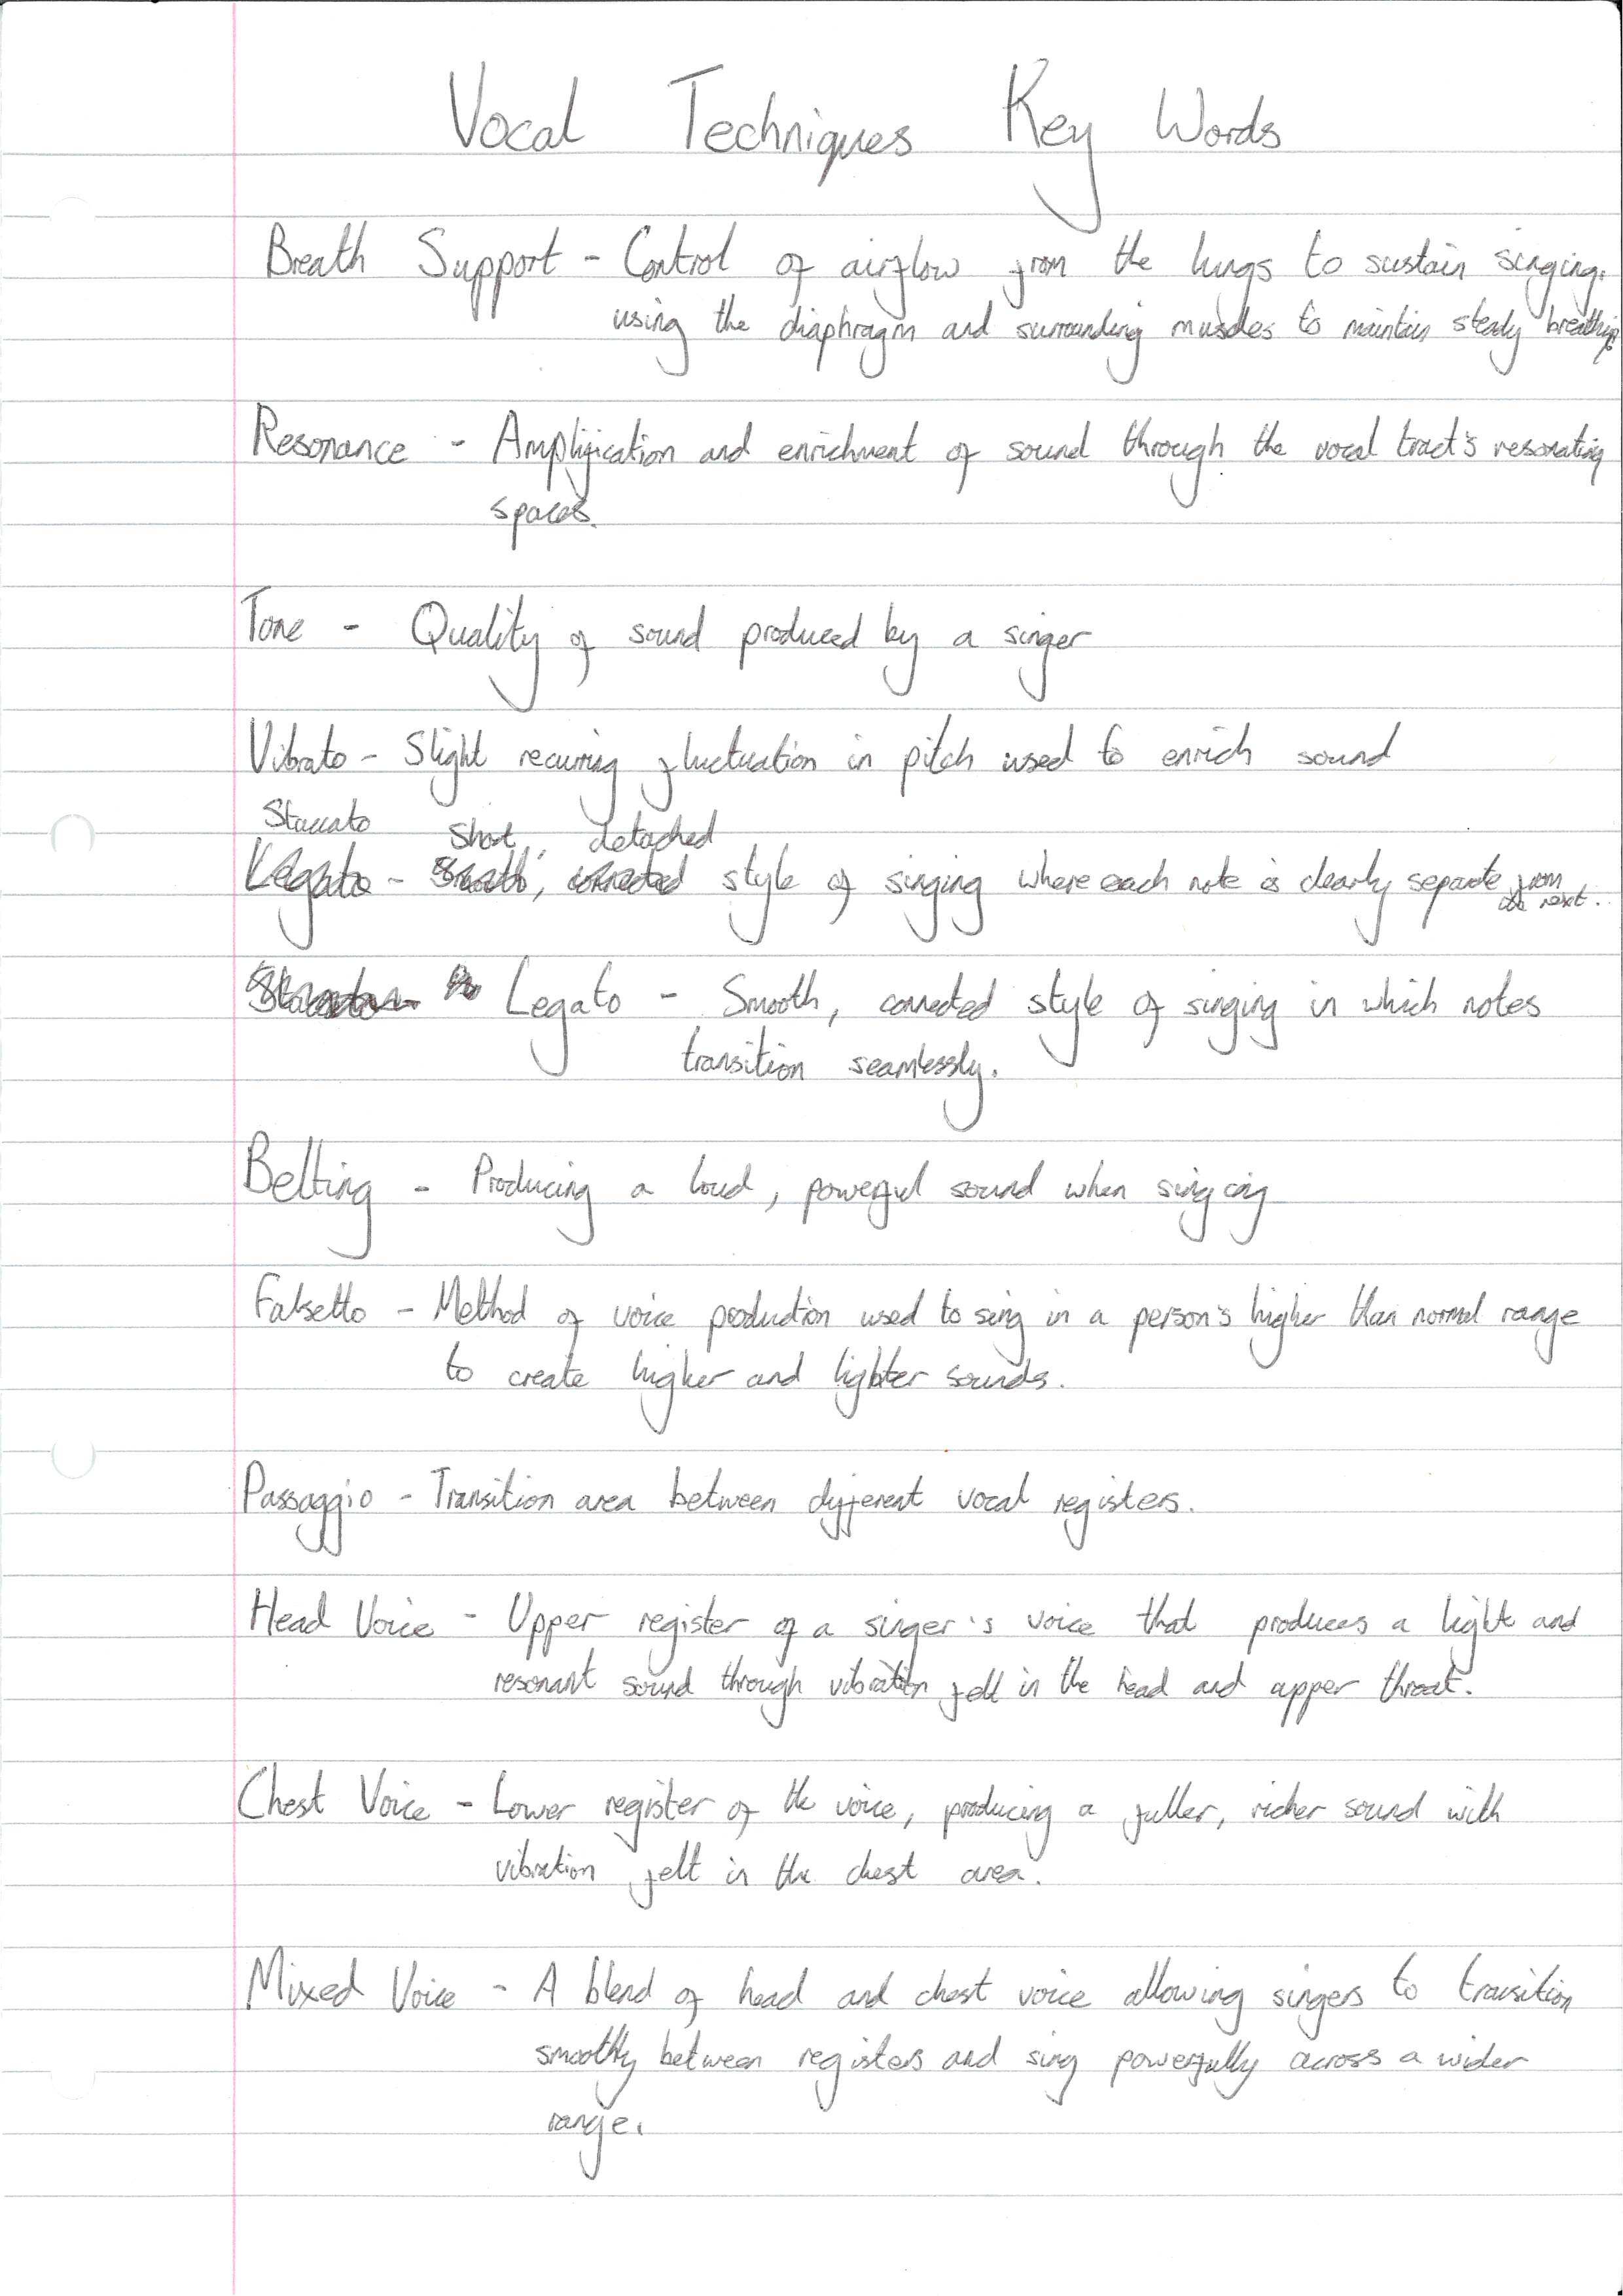 Vocal Techniques Key Words
Breath Support - Control of airflow from the lungs to sustain singing.
using the diaphragm and surrounding muscles to maintain steady breathing.
Resonance - Amplification and enrichment of sound through the vocal tract's resonating
spaces.
Tone - Quality of sound produced by a singer
Vibrato - Slight recurring fluctuation in pitch used to enrich sound
Staccato short, detached
Legato - Smooth, connected style of singing where each note is clearly separate from
the next.
Staccato - Legato - Smooth, connected style of singing in which notes
transition seamlessly.
Belting - Producing a loud, powerful sound when singing
Falsetto - Method of voice production used to sing in a person's higher than normal range
to create higher and lighter sounds.
Passaggio - Transition area between different vocal registers.
Head Voice - Upper register of a singer's voice that produces a light and
resonant sound through vibration felt in the head and upper throat.
Chest Voice - Lower register of the voice, producing a fuller, richer sound with
vibration felt in the chest area.
Mixed Voice - A blend of head and chest voice allowing singers to transition
smoothly between registers and sing powerfully across a wider
range.